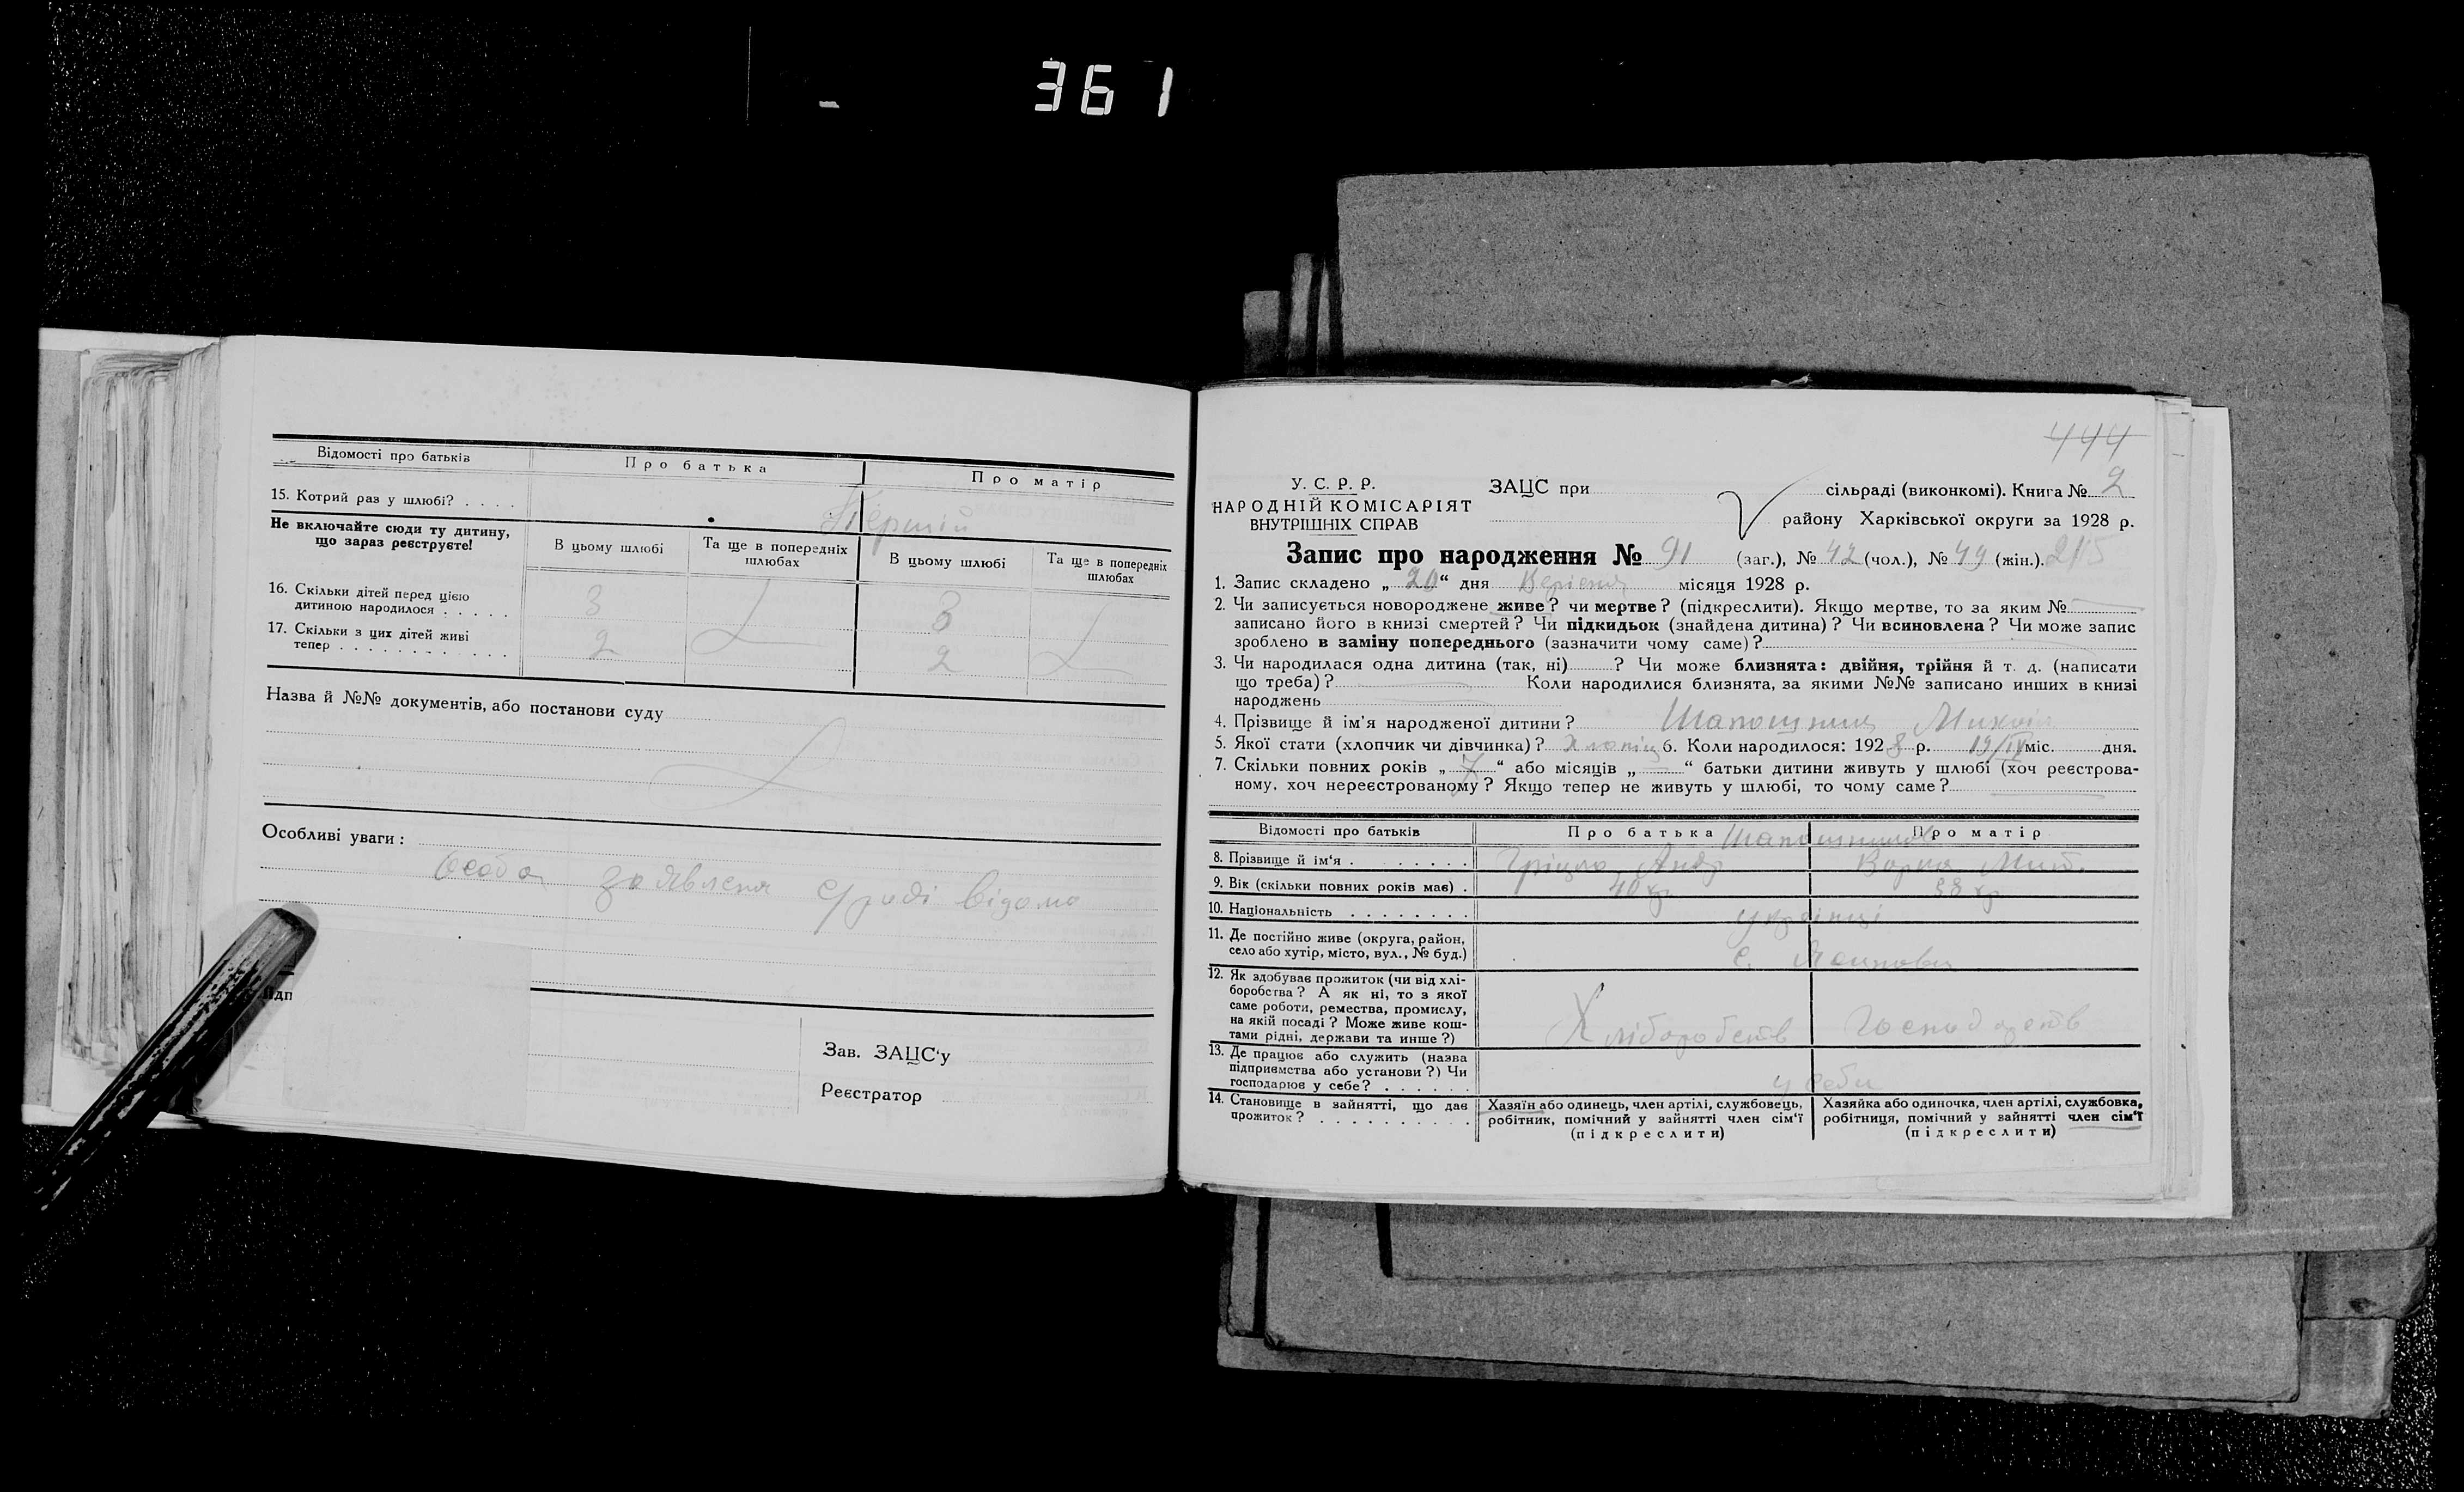 361
Відомості про батьків
Про батька
Про матір
15. Котрий раз у шлюбі? . . . .
Перший
Не включайте сюди ту дитину,
що зараз реєструєте!
В цьому шлюбі
Та ще в попередніх
шлюбах
В цьому шлюбі
Та ще в попередніх
шлюбах
16. Скільки дітей перед цією
дитиною народилося . . . . . 3 3
17. Скільки з цих дітей живі
тепер . . . . . . . . . . . . 2 2
Назва й №№ документів, або постанови суду
Особливі уваги :
Особа заявленя відома
Підп
Зав. ЗАЦС‘у
Реєстратор
444
У. С. Р. Р.
НАРОДНІЙ КОМІСАРІЯТ
ВНУТРІШНІХ СПРАВ
ЗАЦС при
сільраді (виконкомі). Книга № 2
району Харківської округи за 1928 р.
Запис про народження № 91 (заг.), № 42 (чол.), № 49 (жін.). 215
1. Запис складено „ 20 “ дня Вересня місяця 1928 р.
2. Чи записується новороджене живе? чи мертве? (підкреслити). Якщо мертве, то за яким №
записано його в книзі смертей? Чи підкидьок (знайдена дитина)? Чи всиновлена? Чи може запис
зроблено в заміну попереднього (зазначити чому саме)?
3. Чи народилася одна дитина (так, ні) ? Чи може близнята: двійня, трійня й т. д. (написати
що треба)? Коли народилися близнята, за якими №№ записано инших в книзі
народжень
4. Прізвище й ім'я народженої дитини?
5. Якої стати (хлопчик чи дівчинка)? хлопіц 6. Коли народилося: 192 8 р. 19/IX міс. дня.
7. Скільки повних років „ 7 “ або місяців „ “ батьки дитини живуть у шлюбі (хоч реєстрова-
ному, хоч нереєстрованому? Якщо тепер не живуть у шлюбі, то чому саме?
Відомості про батьків
Про батька
Про матір
8. Прізвище й ім‘я . . . . . . . .
Грицко Андр
Варка
9. Вік (скільки повних років має) . 40 38
10. Національність . . . . . . . . українці
11. Де постійно живе (округа, район,
село або хутір, місто, вул., № буд.)
с.
12. Як здобуває прожиток (чи від хлі-
боробства? А як ні, то з якої
саме роботи, ремества, промислу,
на якій посаді? Може живе кош-
тами рідні, держави та инше?)
Хліборобств
Господарств
13. Де працює або служить (назва
підприємства або установи?) Чи
господарює у себе? . . . . . .
у себи
14. Становище в зайнятті, що дає
прожиток? . . . . . . . . . .
Хазяїн або одинець, член артілі, службовець,
робітник, помічний у зайнятті член сім‘ї
(підкреслити)
Хазяйка або одиночка, член артілі, службовка,
робітниця, помічний у зайнятті член сім‘ї
(підкреслити)